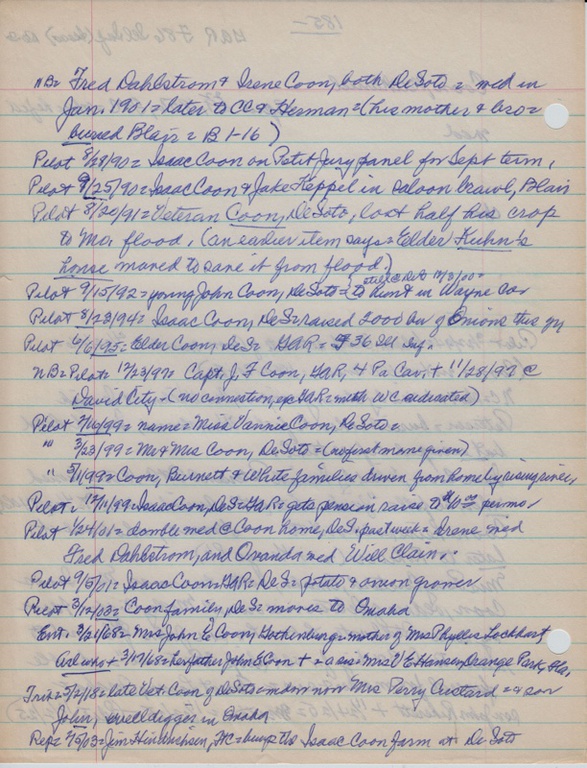 185-
NB= Fred Dahlstrom & Irene Coon, both DeSoto = med in
Jan. 1901 = later to CC & Herman = (his mother & bro =
buried Blair = B 1-16)
Pilot 8/28/90 = Isaac Coon on Petit Jury panel for Sept term,
Pilot 9/25/90 = Isaac Coon & Jake Heppel in saloon brawl, Blair
Pilot 8/20/91 = Veteran Coon, DeSoto, lost half his crop
to Mo. flood, (an earlier item says = Elder Kuhn's
house moved to save it from flood.)
still @ DeS 12/8/00=
Pilot 9/15/92 = young John Coon, DeSoto = to hunt in Wayne Co.
Pilot 8/23/94 = Isaac Coon, DeS = raised 2000 bu of Onions this yr
Pilot 6/6/95 = Elder Coon, DeS = GAR = 36 Ill Inf.
NB = Pilot = 12/23/97 = Capt. J F Coon, GAR, 4 Pa Cav, + 11/28/97 @
David City - (no connection, exp GAR = with WC indicated)
Pilot 2/16/99 = name = Miss Vannie Coon, DeSoto =
" 3/23/99 = Mr & Mrs Coon, DeSoto = (no first name given)
" 5/11/99 = Coon, Burnett & White families driven from home by rising river,
Pilot = 12/11/99 = Isaac Coon, DeS = GAR = gets pension raise to $10.00 per mo
Pilot 1/24/01 = double med @ Coon home, DeS, past week = Irene med
Fred Dahlstrom, and Ovanda med Will Clain..
Pilot 9/5/01 = Isaac Coon, GAR = DeS = potato & onion grower
Pilot 3/12/03 = Coon family, DeS = moves to Omaha
Ent. 3/21/68 = Mrs John E Coon, Gothenburg = mother of Mrs Phyllis Lockhart,
Arl who + 3/17/68 = her father John E Coon + = a sis = Mrs V E Hansen, Orange Park, Fla,
Trib = 5/2/18 = late Vet. Coon of DeSoto = mom now Mrs Perry Custard = & son
John, well digger in Omaha
Rep = 2/5/03 = Jim Hinrichsen, HC = buys the Isaac Coon farm at DeSoto